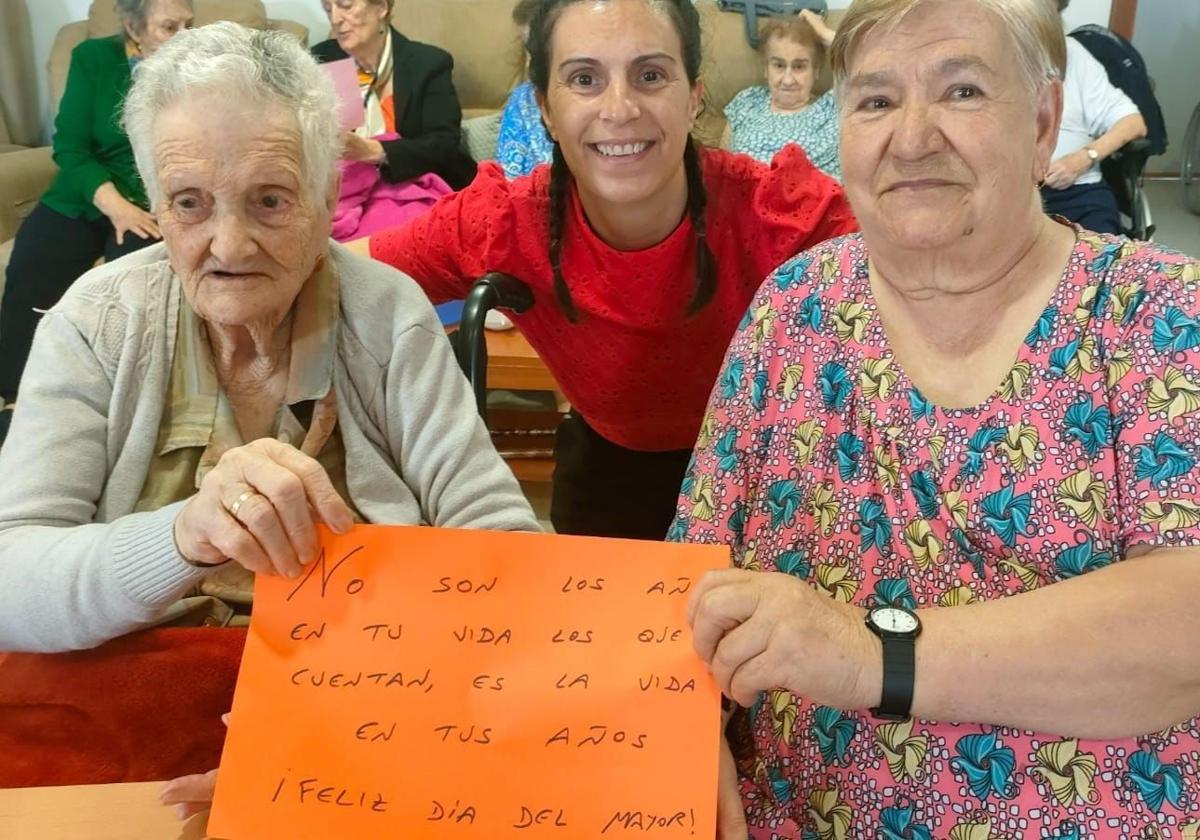 No SON LOS AÑ
EN TU VIDA LOS QUE
CUENTAN, ES LA VIDA
EN TUS AÑOS
¡FELIZ DÍA DEL MAYOR!